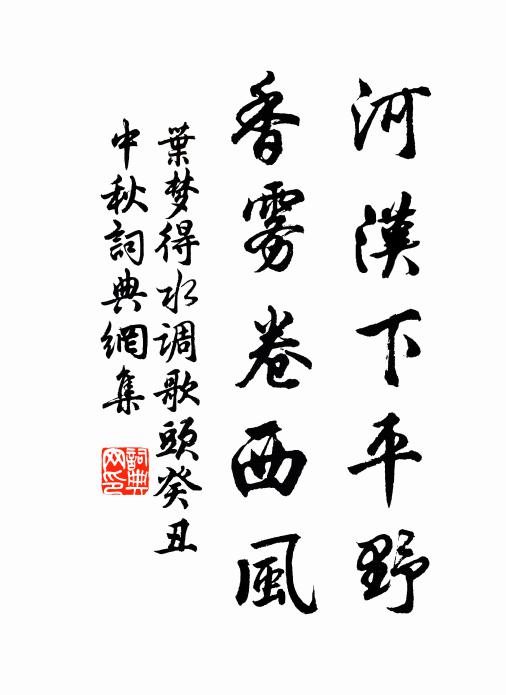 河漢下平野
香雾卷西風
葉梦得水调歌頭癸丑
中秋詞典網集
詞典
网印